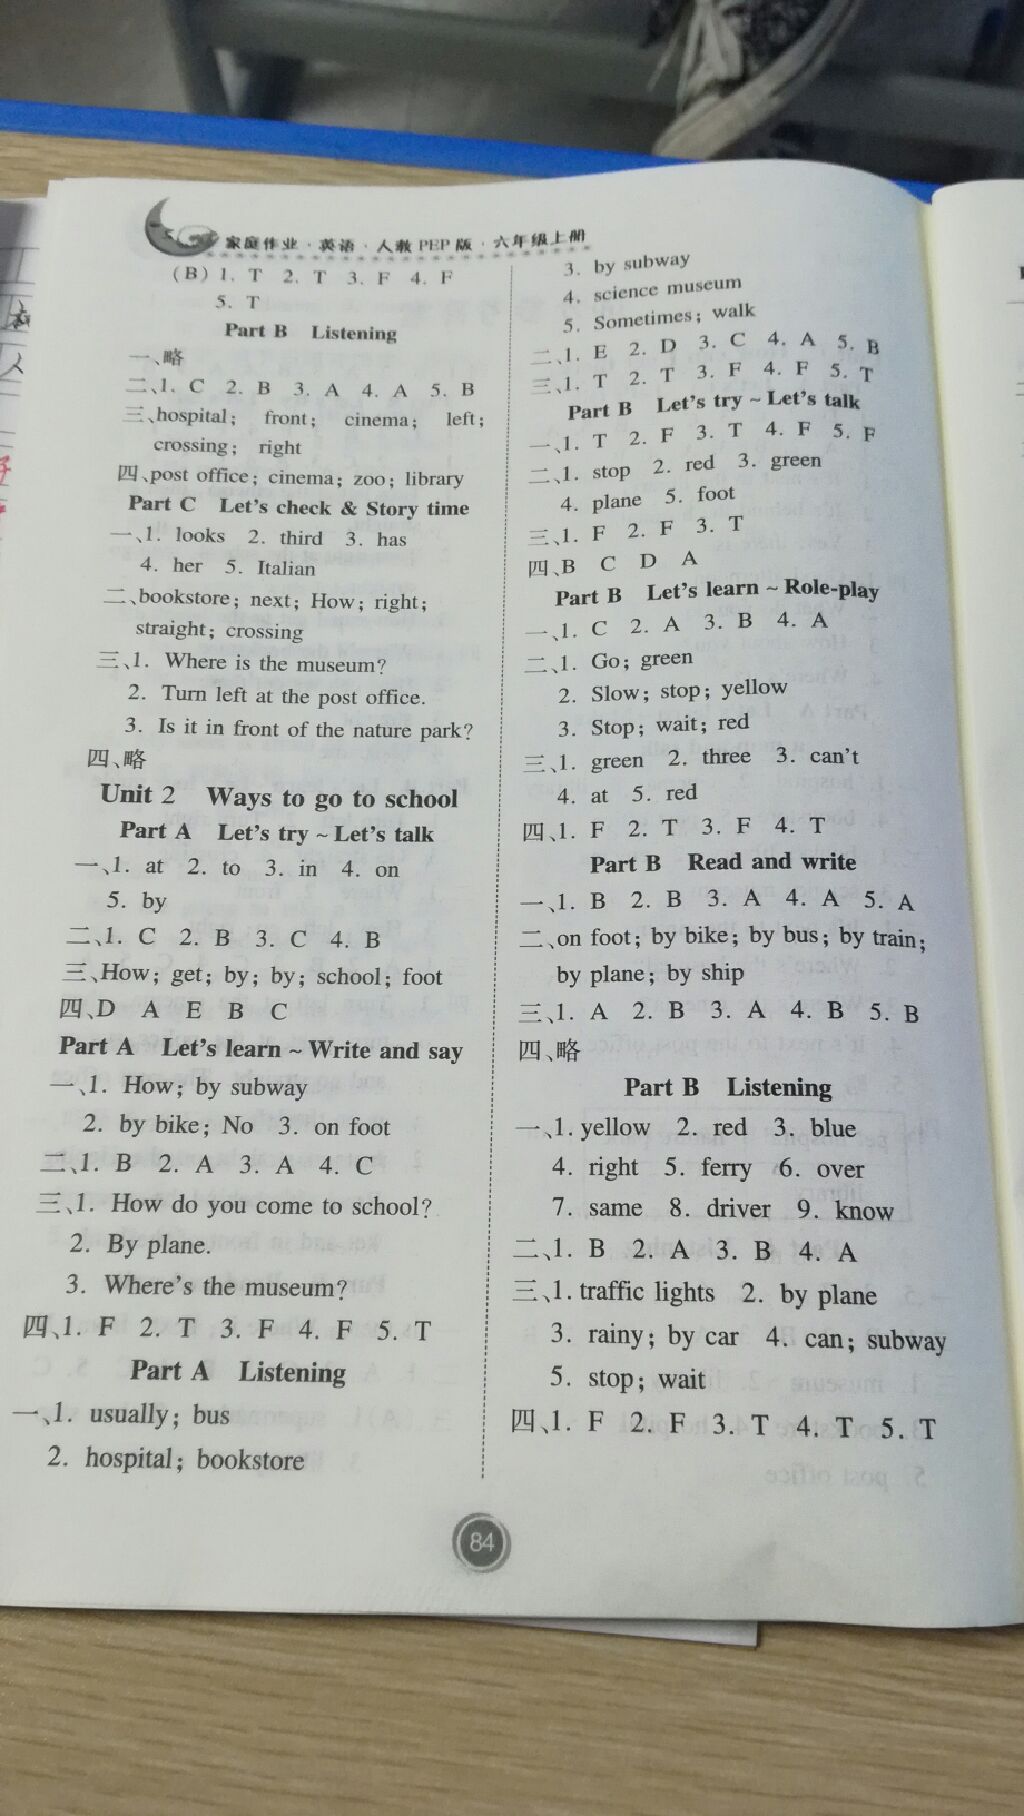 家庭作业·英语·人教PEP版·六年级上册
(B)1. T 2. T 3. F 4. F
5. T
Part B Listening
一、略
二、1. C 2. B 3. A 4. A 5. B
三、hospital; front; cinema; left;
crossing; right
四、post office; cinema; zoo; library
Part C Let's check & Story time
一、1. looks 2. third 3. has
4. her 5. Italian
二、bookstore; next; How; right;
straight; crossing
三、1. Where is the museum?
2. Turn left at the post office.
3. Is it in front of the nature park?
四、略
Unit 2 Ways to go to school
Part A Let's try ~ Let's talk
一、1. at 2. to 3. in 4. on
5. by
二、1. C 2. B 3. C 4. B
三、How; get; by; by; school; foot
四、D A E B C
Part A Let's learn ~ Write and say
一、1. How; by subway
2. by bike; No 3. on foot
二、1. B 2. A 3. A 4. C
三、1. How do you come to school?
2. By plane.
3. Where's the museum?
四、1. F 2. T 3. F 4. F 5. T
Part A Listening
一、1. usually; bus
2. hospital; bookstore
3. by subway
4. science museum
5. Sometimes; walk
二、1. E 2. D 3. C 4. A 5. B
三、1. T 2. T 3. F 4. F 5. T
Part B Let's try ~ Let's talk
一、1. T 2. F 3. T 4. F 5. F
二、1. stop 2. red 3. green
4. plane 5. foot
三、1. F 2. F 3. T
四、B C D A
Part B Let's learn ~ Role-play
一、1. C 2. A 3. B 4. A
二、1. Go; green
2. Slow; stop; yellow
3. Stop; wait; red
三、1. green 2. three 3. can't
4. at 5. red
四、1. F 2. T 3. F 4. T
Part B Read and write
一、1. B 2. B 3. A 4. A 5. A
二、on foot; by bike; by bus; by train;
by plane; by ship
三、1. A 2. B 3. A 4. B 5. B
四、略
Part B Listening
一、1. yellow 2. red 3. blue
4. right 5. ferry 6. over
7. same 8. driver 9. know
二、1. B 2. A 3. B 4. A
三、1. traffic lights 2. by plane
3. rainy; by car 4. can; subway
5. stop; wait
四、1. F 2. F 3. T 4. T 5. T
84